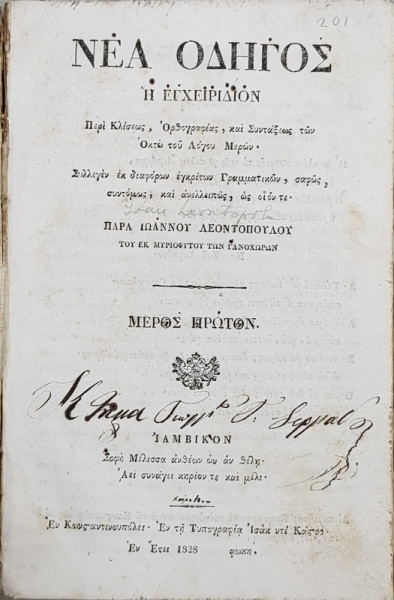 201
ΝΕΑ ΟΔΗΓΟΣ
Ή ΕΓΧΕΙΡΙΔΙΟΝ
Περὶ Κλίσεως, Ὀρθογραφίας, καὶ Συντάξεως τῶν
Ὀκτὼ τοῦ Λόγου Μερῶν.
Συλλεγὲν ἐκ διαφόρων ἐγκρίτων Γραμματικῶν, σαφῶς,
συντόμως, καὶ ἀνελλειπῶς, ὡς οἷόν τε.
ΠΑΡΑ ΙΩΑΝΝΟΥ ΛΕΟΝΤΟΠΟΥΛΟΥ
ΤΟΥ ΕΚ ΜΥΡΙΟΦΥΤΟΥ ΤΩΝ ΓΑΝΟΧΩΡΩΝ
ΜΕΡΟΣ ΠΡΩΤΟΝ.
Κτῆμα
ΙΑΜΒΙΚΟΝ
Σοφὴ Μέλισσα ἀνθέων ὧν ἂν θέλῃ.
Ἀεὶ συνάγει κηρίον τε καὶ μέλι.
Ἐν Κωνσταντινουπόλει. Ἐν τῇ Τυπογραφίᾳ Ἰσὰκ ντὲ Κάστρο
Ἐν Ἔτει 1828 αωκη.